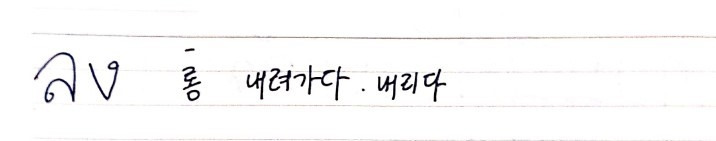 ลง롱 내려가다. 내리다